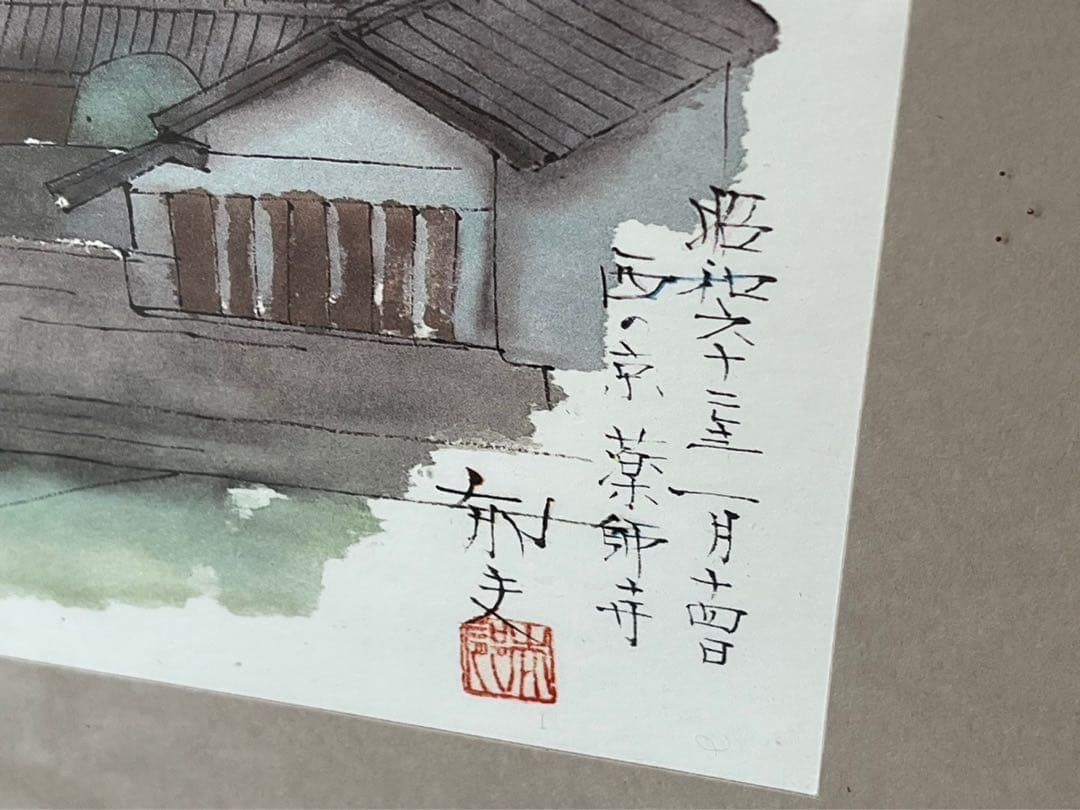 昭和六十三年一月十四日
西の京 薬師寺
郁夫